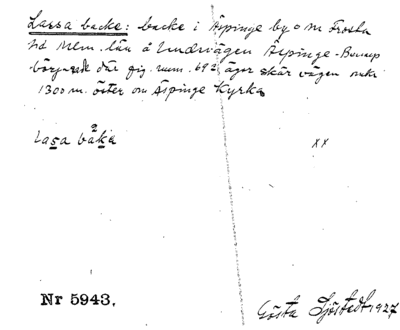 Lassa backe: backe i Äspinge by o sn Frosta
hd Mlm. län å landsvägen Äspinge - 
där fig. num. 69 ägor skär vägen
1300 m. öster om Äspinge Kyrka
Lasa båka
xx
Nr 5943.
Gösta Sjöstedt 1927